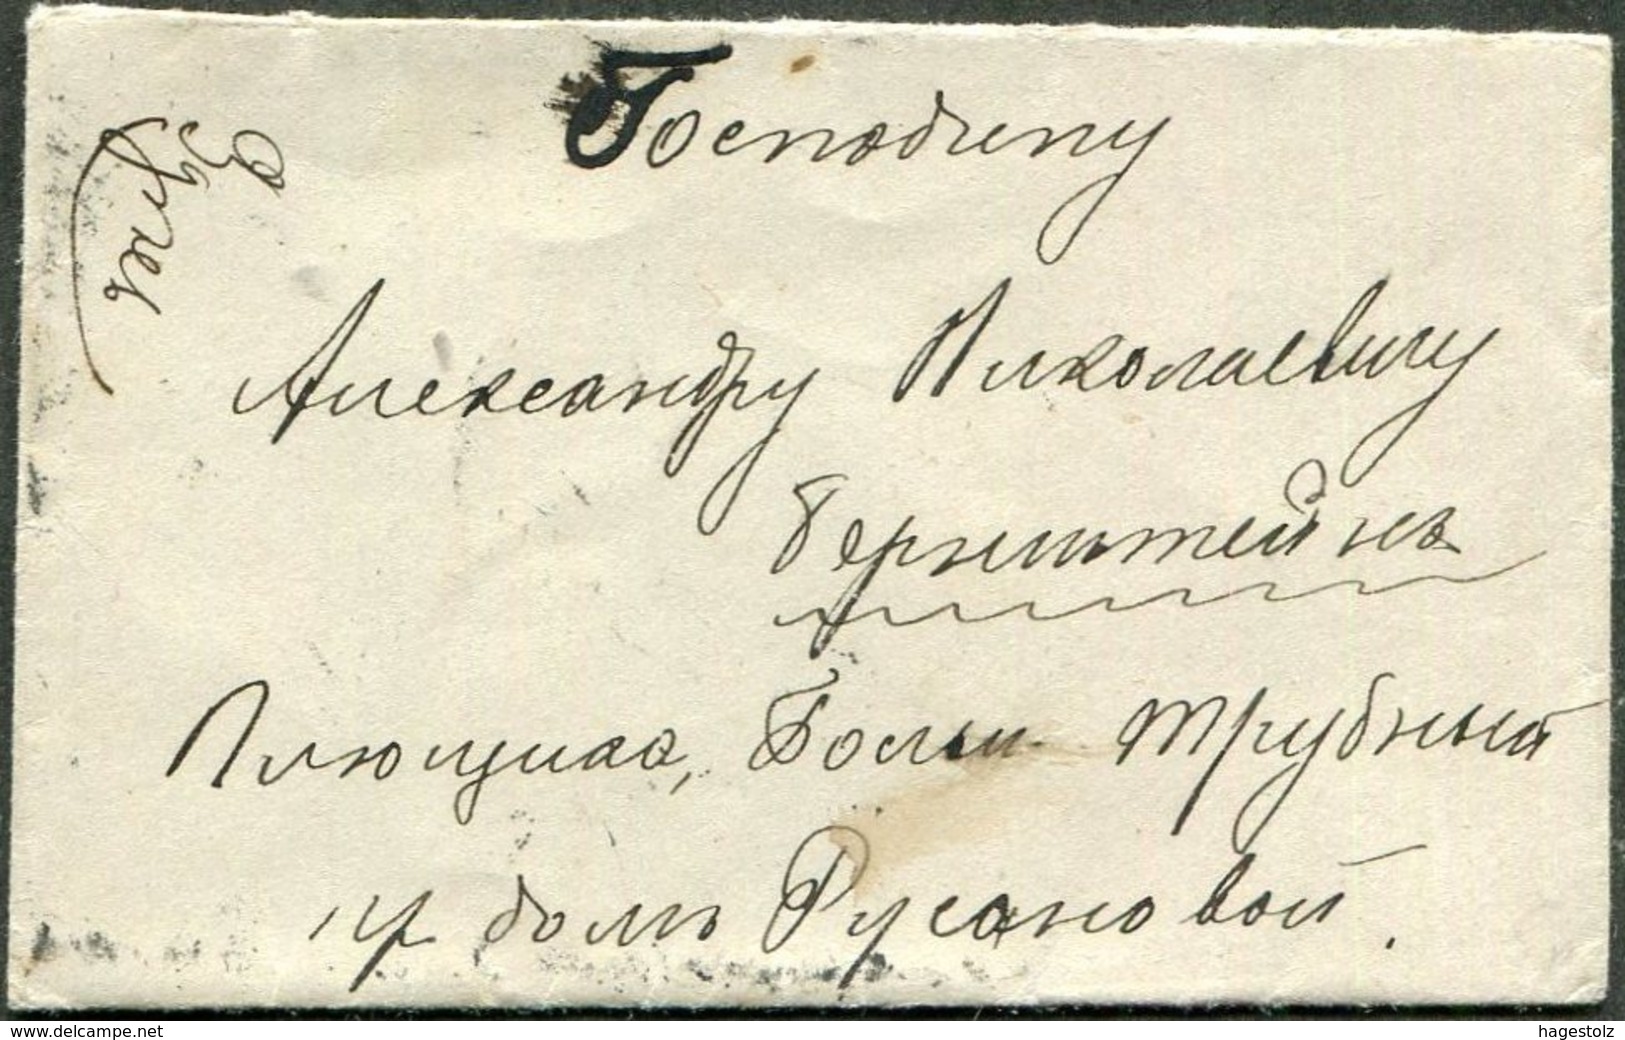 Здѣсь
Господину
Александру Николаевичу
Бернштейнъ
Плющиха, Больш. Трубный
пр домъ Русановой.
www.delcampe.net
hagestolz